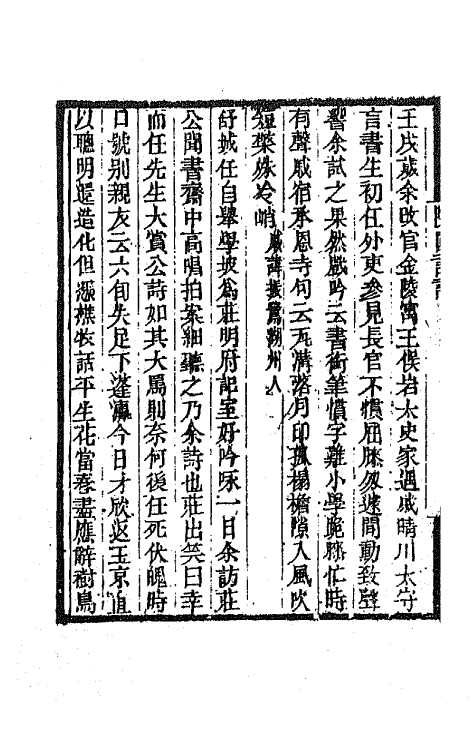 壬戌歲余改官金陵寓王俟岩太史家遇戚晴川太守
言書生初任外吏參見長官不慣屈膝匆遽間動致聲
響余試之果然戲吟云書銜筆慣字難小學跪膝忙時
有聲戚宿承恩寺句云瓦溝落月印孤榻檐隙入風吹
短檠殊冷峭戚諱振鷺湖州人
舒城任自舉學坡為莊明府記室好吟咏一日余訪莊
公聞書齋中高唱拍案細聽之乃余詩也莊出笑曰幸
而任先生大賞公詩如其大罵則奈何後任死伏魄時
口號別親友云六旬失足下蓬瀛今日才欣返玉京直
以聰明還造化但憑樵牧話平生花當春盡應辭樹鳥